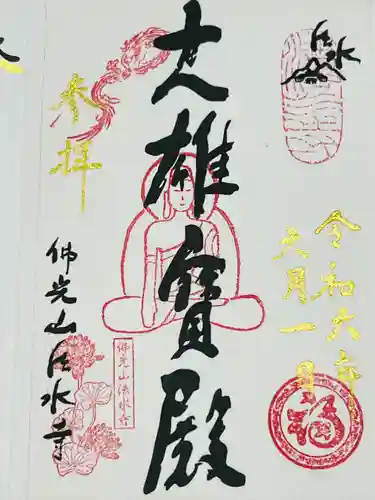 法水
令和六年
六月一日
福
大雄寶殿
奉拝
佛光山法水寺
佛光山法水寺